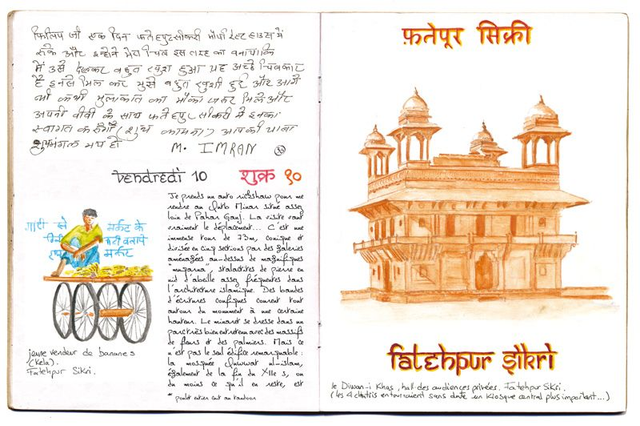 फिलिप जी एक दिन फतेहपुर सीकरी गोपी रेस्ट हाउस में
रुके और इन्होंने मेरा चित्र इस तरह का बनाया कि
मैं उसे देखकर बहुत खुश हुआ यह अच्छे चित्रकार
है इनसे मिल कर मुझे बहुत खुशी हुई और आगे
भी कभी मुलाकात का मौका जरूर मिले और
अपनी बीवी के साथ फतेहपुर सीकरी में इनका
स्वागत करूँगा (शुभ कामना) आपकी यात्रा
शुभ मंगल मय हो
M. IMRAN
vendredi 10 शुक्र १०
Je prends un auto rickshaw pour me
rendre au Qutb Minar situé assez
loin de Pahar Ganj. La visite vaut
vraiment le déplacement... C'est une
immense tour de 73m, conique et
divisée en cinq sections par des galeries
aménagées au-dessus de magnifiques
"muqarna"*, stalactites de pierre en
nid d'abeille assez fréquentes dans
l'architecture islamique. Des bandes
d'écritures coufiques courent tout
autour du monument à une certaine
hauteur. Le minaret se dresse dans un
parc très bien entretenu avec des massifs
de fleurs et des palmiers. Mais ce
n'est pas le seul édifice remarquable :
la mosquée Quwwat al-islam,
également de la fin du XIIe s, ou
du moins ce qu'il en reste, est
jeune vendeur de bananes
(Kela).
Fatehpur Sikri.
फ़तेपूर सिक्री
fatehpur sikri
le Diwan-i Khas, hall des audiences privées. Fatehpur Sikri.
(les 4 chatris entouraient sans doute un kiosque central plus important...)